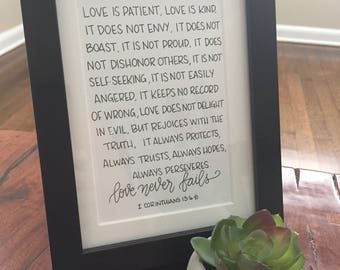 LOVE IS PATIENT, LOVE IS KIND.
IT DOES NOT ENVY, IT DOES NOT
BOAST, IT IS NOT PROUD, IT DOES
NOT DISHONOR OTHERS, IT IS NOT
SELF SEEKING, IT IS NOT EASILY
ANGERED, IT KEEPS NO RECORD
OF WRONG, LOVE DOES NOT DELIGHT
IN EVIL, BUT REJOICES WITH THE
TRUTH, IT ALWAYS PROTECTS,
ALWAYS TRUSTS, ALWAYS HOPES,
ALWAYS PERSEVERES.
love never fails
I CORINTHIANS 13:4-8